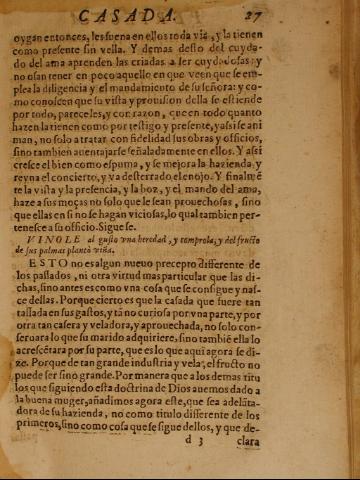 CASADA. 27
oygan entonces, les suena en ellos toda via, y la tienen
como presente sin vella. Y demas desto del cuyda-
do del ama aprenden las criadas a ser cuydadosas: y
no osan tener en poco aquello en que veen que se em
plea la diligencia y el mandamiento de su señora: y co-
mo conoscen que su vista y prouision della se estiende
por todo, pareceles, y con razon, que en todo quanto
hazen la tienen como por testigo y presente, y assi se ani
man, no solo a tratar con fidelidad sus obras y officios,
sino tambien auentajarse señaladamente en ellos. Y assi
cresce el bien como espuma, y se mejora la hazienda, y
reyna el concierto, y va desterrado el enojo. Y finalmẽ
te la vista y la presencia, y la boz, y el mando del ama,
haze a sus moças no solo que le sean prouechosas, sino
que ellas en si no se hagan viciosas, lo qual tambien per-
tenesce a su officio. Sigue se.
VINOLE al gusto vna heredad, y comprola, y del fructo
de sus palmas plantò viña.
ESTO no es algun nueuo precepto differente de
los passados, ni otra virtud mas particular que las di-
chas, sino antes es como vna cosa que se consigue y nas-
ce dellas. Porque cierto es que la casada que fuere tan
tassada en sus gastos, y tã no curiosa por vna parte, y por
otra tan casera y veladora, y aprouechada, no solo con-
seruara lo que su marido adquiriere, sino tambiẽ ella lo
acrescẽtara por su parte, que es lo que aqui agora se di-
ze. Porque de tan grande industria y vela, el fructo no
puede ser sino grande. Por manera que a los demas titu
los que siguiendo esta doctrina de Dios auemos dado a
la buena muger, añadimos agora este, que sea adelãta-
dora de su hazienda, no como titulo differente de los
primeros, sino como cosa que se sigue dellos, y que de-
d 3 clara